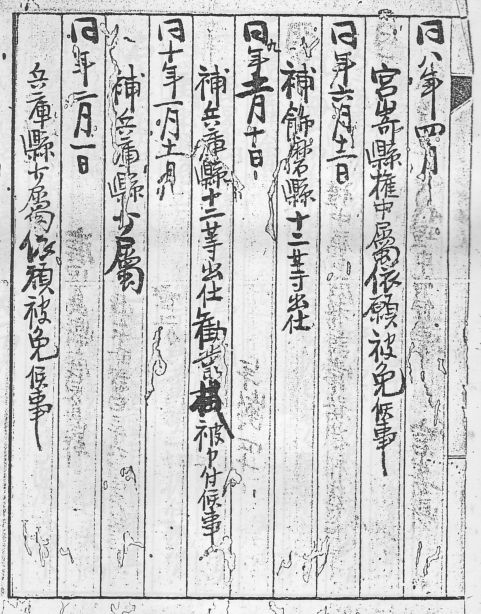 同八年四月
宮崎縣権中属依願被免候事
同年六月十二日
補飾磨縣十二等出仕
同九年月十日
補兵庫縣十二等出仕勧業被申付候事
同十年一月十
補兵庫縣少属
同年二月一日
兵庫縣少属依願被免候事